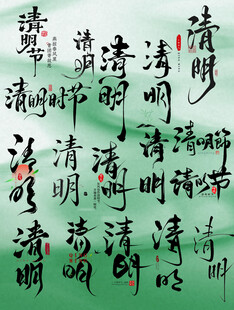 清明节
清明
清明
清明
清明
清明时节
清明
清明
清明
清明
清明節
清明节
清明
清明
清明
清明
清明
清明